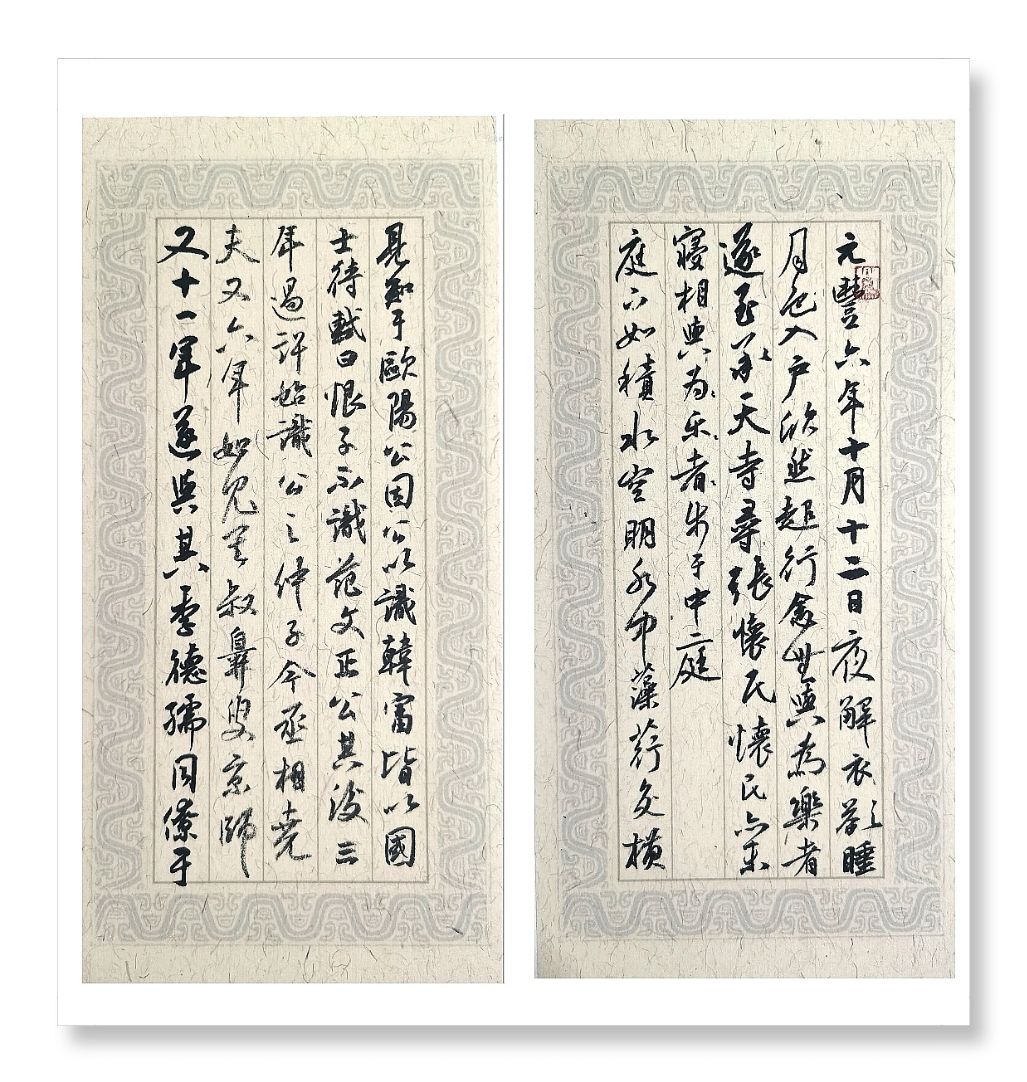 元豐六年十月十二日夜解衣欲睡
月色入戶欣然起行念無與為樂者
遂至承天寺尋張懷民懷民亦未
寢相與為乐者步于中庭
庭下如積水空明水中藻荇交橫
見知于歐陽公因公以識韓富皆以國
士待軾曰恨子不識范文正公其後三
年過許始識公之仲子今丞相堯
夫又六年始見其叔彝叟京師
又十一年遂與其季德孺同僚于